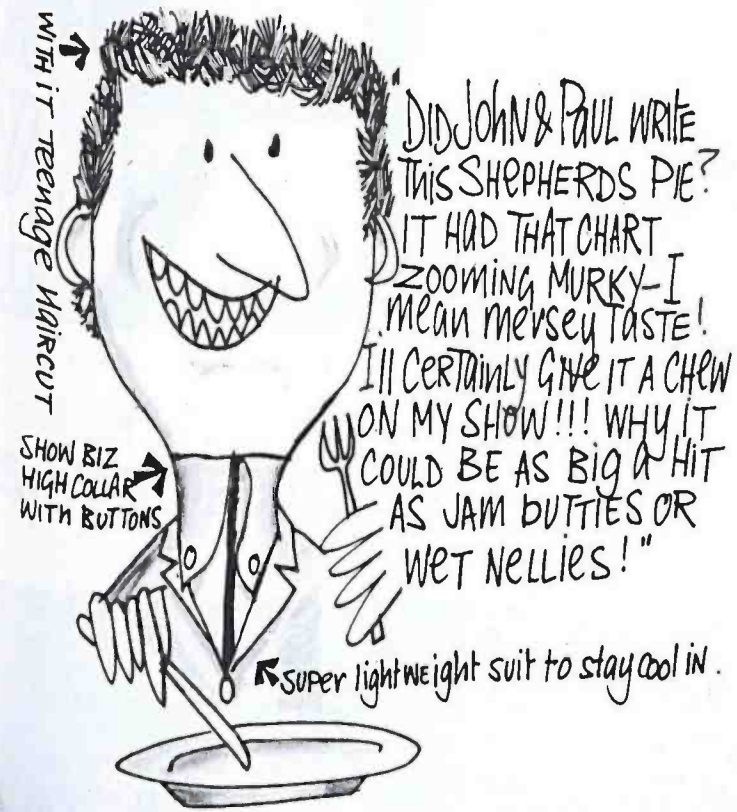 WITH IT TEENAGE HAIRCUT
"DID JOHN & PAUL WRITE
THIS SHEPHERDS PIE?
IT HAD THAT CHART
ZOOMING MURKY-I
MEAN MERSEY TASTE!
I'll CERTAINLY GIVE IT A CHEW
ON MY SHOW!!! WHY IT
COULD BE AS BIG A HIT
AS JAM BUTTIES OR
WET NELLIES!"
SHOW BIZ
HIGH COLLAR
WITH BUTTONS
SUPER lightWEIGHT suit to stay cool in.